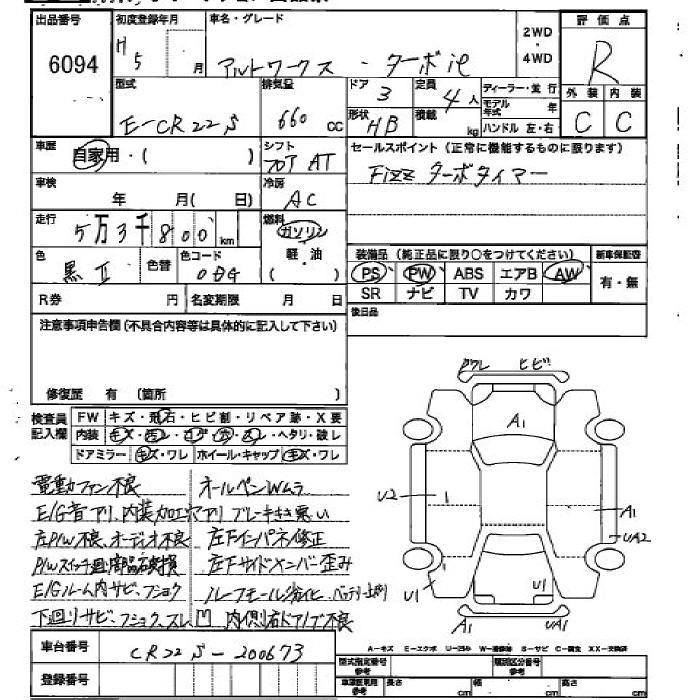 出品番号 初度登録年月 車名・グレード 評価点
6094 H5 月 アルトワークス・ターボie 2WD・4WD R
型式 排気量 ドア 定員 ディーラー・並行 外装 内装
E-CR22S 660cc 3 4人 モデル年式 年 C C
形状 HB 積載 kg ハンドル 左・右
車歴 自家用・( ) シフト フロア AT セールスポイント(正常に機能するものに限ります)
車検 年 月( 日) 冷房 AC Fizz ターボタイマー
走行 5万3千800km 燃料 ガソリン
色 黒II 色替 色コード 軽・油 ( )
装備品(純正品に限り○をつけてください) 新車保証書
PS PW ABS エアB AW 有・無
SR ナビ TV カワ
R券 円 名変期限 月 日 後日品
注意事項申告欄(不具合内容等は具体的に記入して下さい)
修復歴 有(箇所 )
検査員記入欄 FW キズ・飛石・ヒビ割・リペア跡・X要
内装 キズ・・・・・ヘタリ・破レ
ドアミラー キズ・ワレ ホイール・キャップ キズ・ワレ
ワレ ヒビ
A1
U2
A1
UA2
U1
U1
A1 UA1
電動ファン不良 オールペンWムラ
E/G音アリ、内装加工穴アリ ブレーキきき悪い
左P/W不良、オーディオ不良 左Fインパネ修正
P/Wスイッチ廻部品破損 左Fサイドメンバー歪み
E/Gルーム内サビ、フショク ルーフモール劣化、バッテリー上り
下廻りサビ、フショク、スレ 凹 内側右ドアノブ不良
車台番号 CR22S-200673
A-キズ E-エクボ U-凹み W-補修跡 S-サビ C-腐食 XX-交換済
登録番号
型式指定番号 参考 類別区分番号 参考
長さ cm 幅 cm 高さ cm